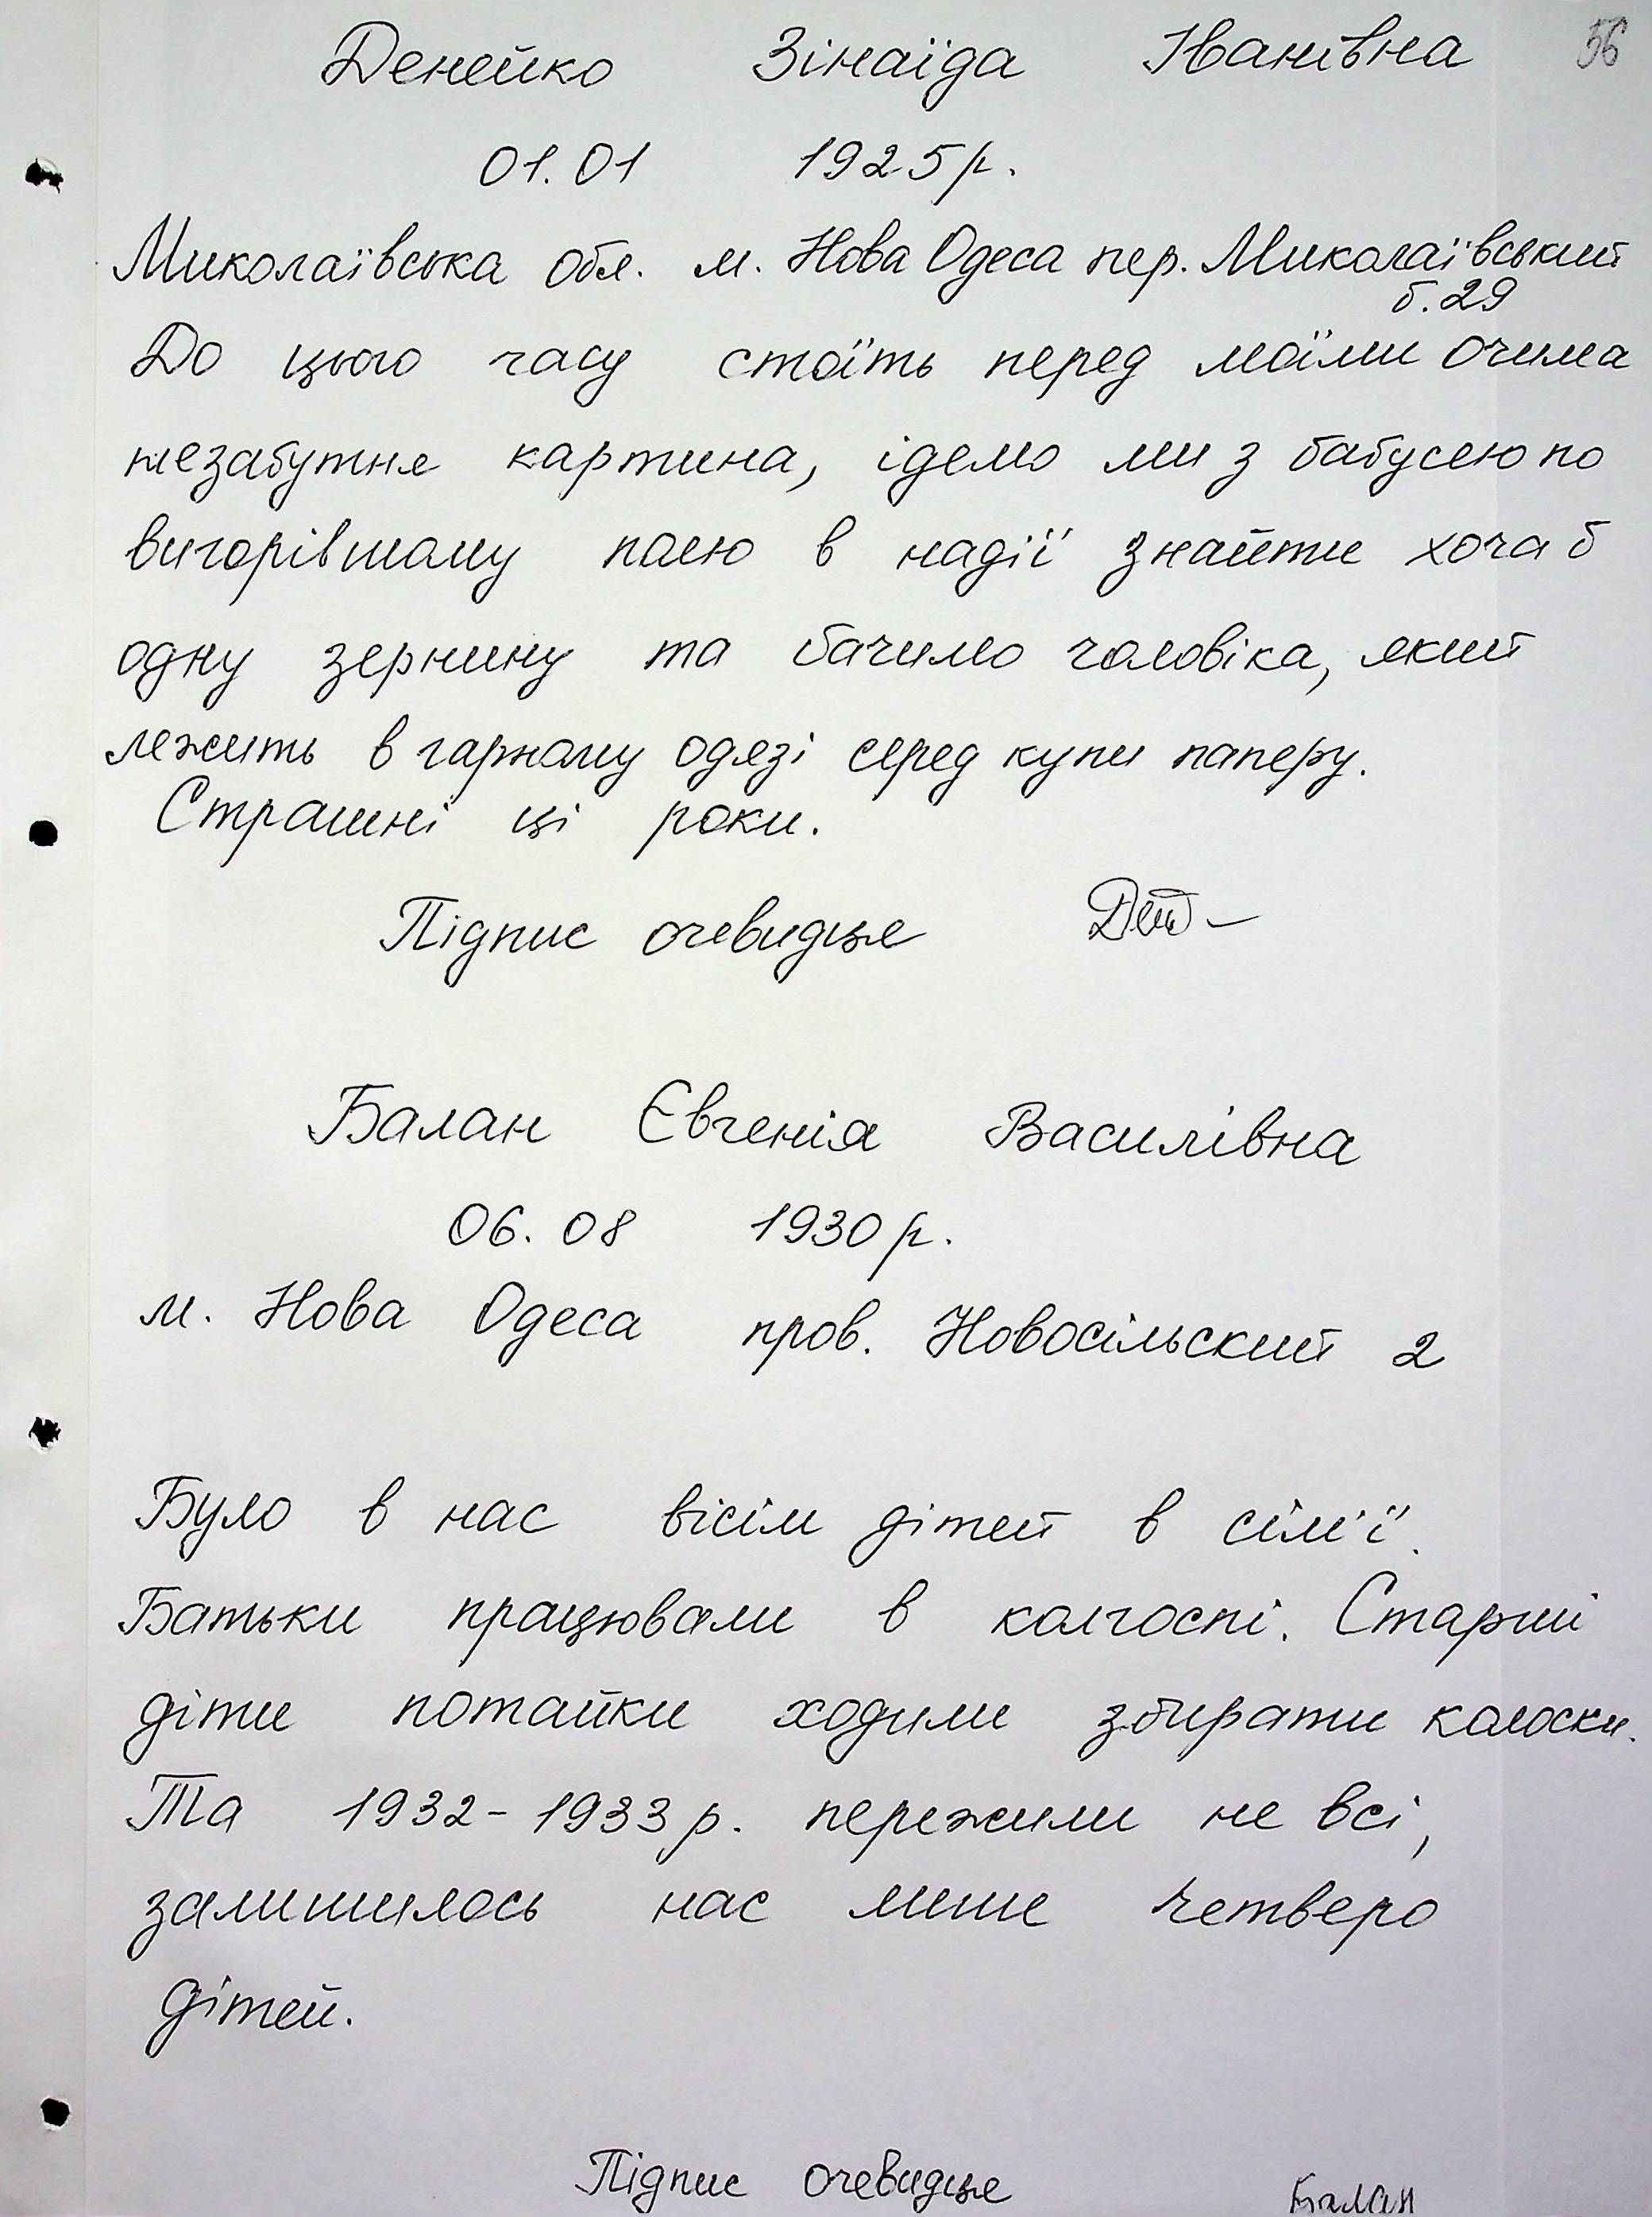 Денейко Зінаїда Іванівна 56
01.01 1925р.
Миколаївська обл. м. Нова Одеса пер. Миколаївський
б. 29
До цього часу стоїть перед моїми очима
незабутня картина, ідемо ми з бабусею по
вигорівшому полю в надії знайти хоча б
одну зернину та бачимо чоловіка, який
лежить в гарному одязі серед купи паперу.
Страшні ці роки.
Підпис очевидця
Балан Євгенія Василівна
06.08 1930р.
м. Нова Одеса пров. Новосільский 2
Було в нас вісім дітей в сім'ї.
Батьки працювали в колгоспі. Старші
діти потайки ходили збирати колоски.
Та 1932-1933р. пережили не всі,
залишилось нас лише четверо
дітей.
Підпис очевидця Балан